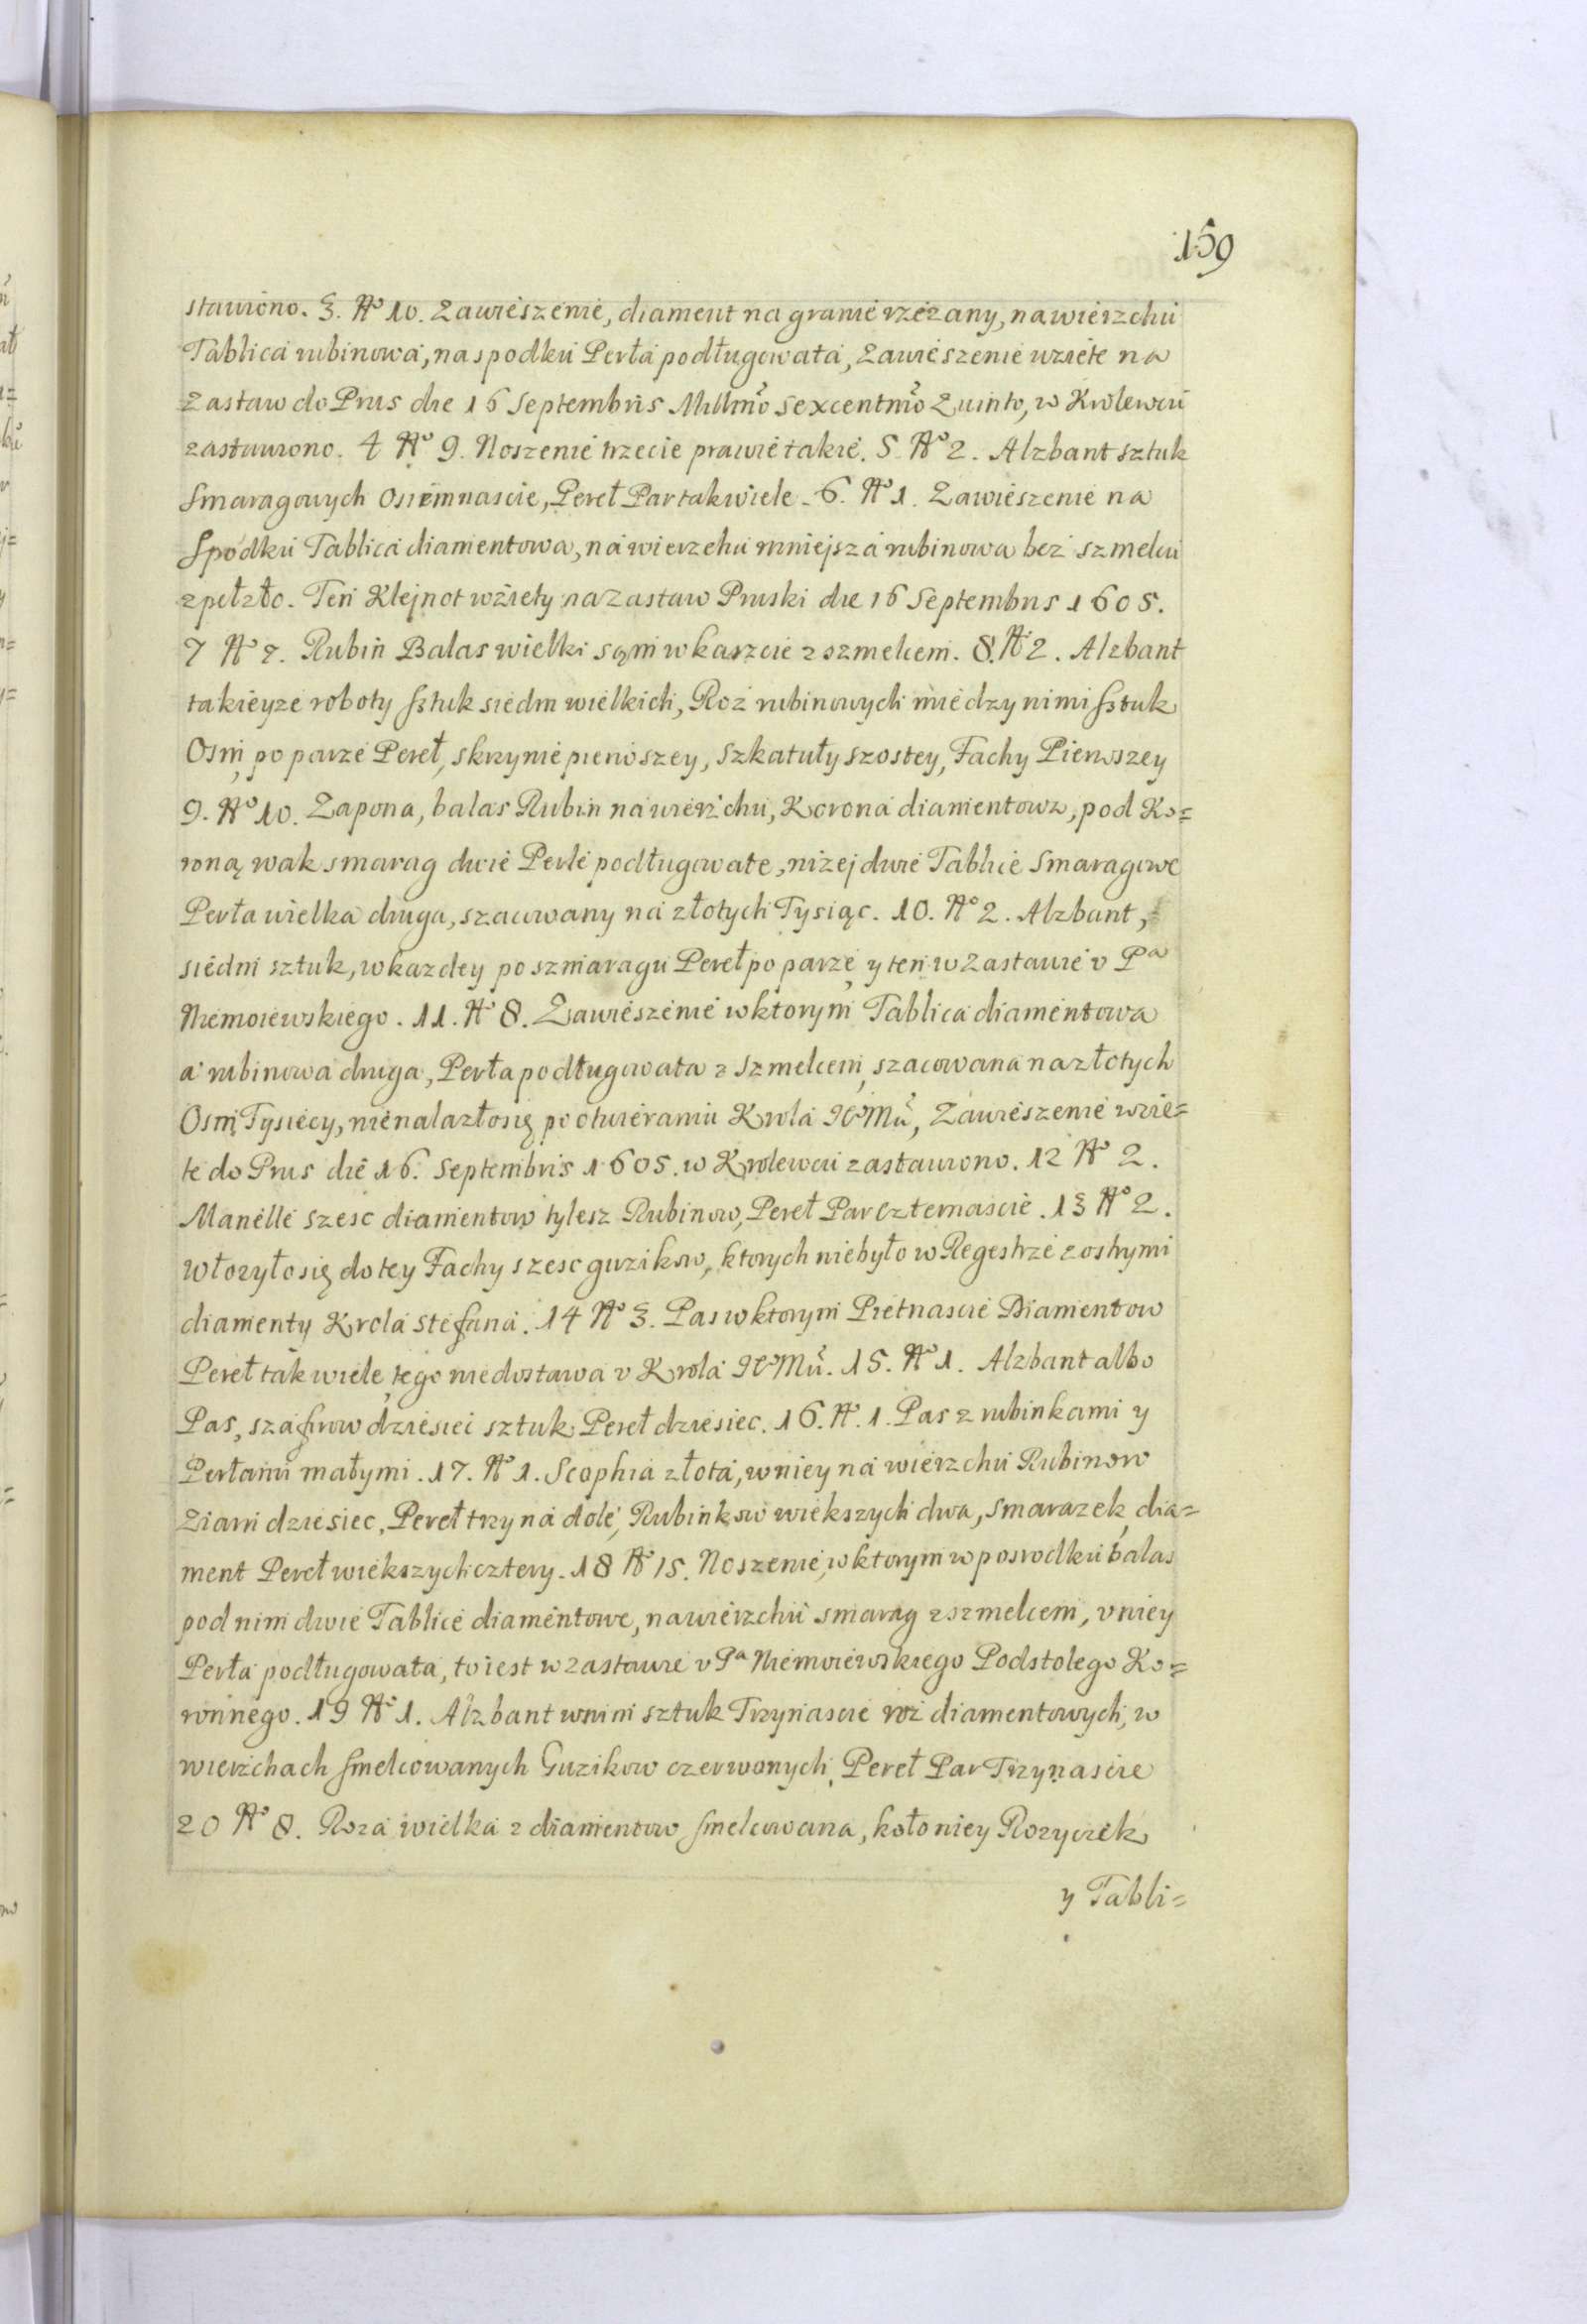 159
stawiono. 3. No 10. Zawieszenie, diament na granie rzezany, na wierzchu
Tablica rubinowa, na spodku Perła podługowata, Zawieszenie wziete na
Zastaw do Prus die 16 Septembris Millmo sexcentmo Quinto, w Krolewcu
zastawiono. 4 No 9. Noszenie trzecie prawie takie. 5 No 2. Alzbant sztuk
Smaragowych Osiemnascie, Pereł Par tak wiele. 6. No 1. Zawieszenie na
Spodku Tablica diamentowa, na wierzchu mniejsza rubinowa bez szmelcu
zpełzło. Ten Klejnot wziety na Zastaw Pruski die 16 Septembris 1605.
7 No 7. Rubin Balas wielki sąm w kaszcie z szmelcem. 8. No 2. Alzbant
takieyze roboty sztuk siedm wielkich, Roz rubinowych miedzy nimi sztuk
Osm, po parze Pereł, skrzynie pierwszey, szkatuły szostey, Fachy Pierwszey
9. No 10. Zapona, balas Rubin na wierzchu, Korona diamentowa, pod Ko=
roną wak smarag dwie Perle podługowate, nizej dwie Tablice Smaragowe
Perła wielka druga, szacowany na złotych Tysiąc. 10. No 2. Alzbant,
siedm sztuk, w kazdey po szmaragu Pereł po parze, y ten w Zastawie v Pa
Niemoiewskiego. 11. No 8. Zawieszenie w ktorym Tablica diamentowa
a rubinowa druga, Perła podługowata z szmelcem, szacowana na złotych
Osm Tysiecy, nie nalazło się po otwieraniu Krola JeoMci, Zawieszenie wzie=
te do Prus die 16. Septembris 1605. w Krolewcu zastawiono. 12 No 2.
Manelle szesc diamentow tylesz Rubinow, Pereł Par czternascie. 13 No 2.
Włozyło się do tey Fachy szesc guzikow, ktorych nie było w Regestrze z ostrymi
diamenty Krola Stefana. 14 No 3. Pas w ktorym Pietnascie Diamentow
Pereł tak wiele, tego nie dostawa v Krola JeoMci. 15. No 1. Alzbant albo
Pas, szafirow dziesiec sztuk Pereł dziesiec. 16. No. 1. Pas z rubinkami y
Perłami małymi. 17. No 1. Scophia złota, w niey na wierzchu Rubinow
Ziarn dziesiec, Pereł trzy na dole, Rubinkow wiekszych dwa, smarazek, dia=
ment Pereł wiekszych cztery. 18 No 15. Noszenie, w ktorym w posrodku balas
pod nim dwie Tablice diamentowe, na wierzchu smarag z szmelcem, v niey
Perła podługowata, to iest w zastawie v Pa Niemoiewskiego Podstolego Ko=
ronnego. 19 No 1. Alzbant w nim sztuk Trzynascie roz diamentowych, w
wierzchach smelcowanych Guzikow czerwonych, Pereł Par Trzynascie
20 No 8. Roza wielka z diamentow smelcowana, koło niey Rozyczek
y Tabli=